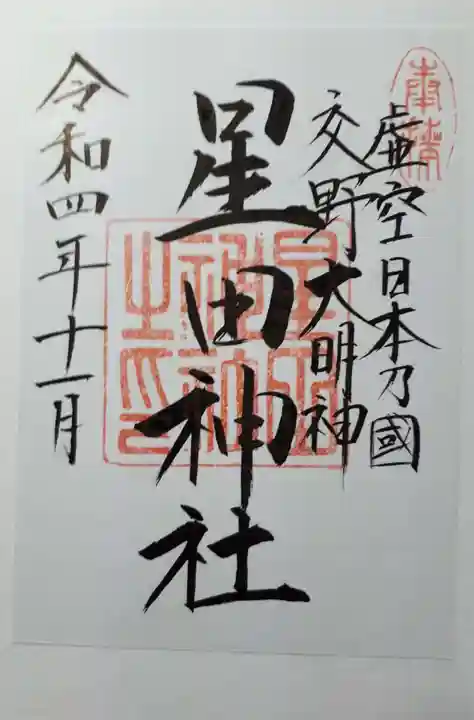 奉拝
虚空日本乃國
交野大明神
星田神社
令和四年十一月
星田神社之印